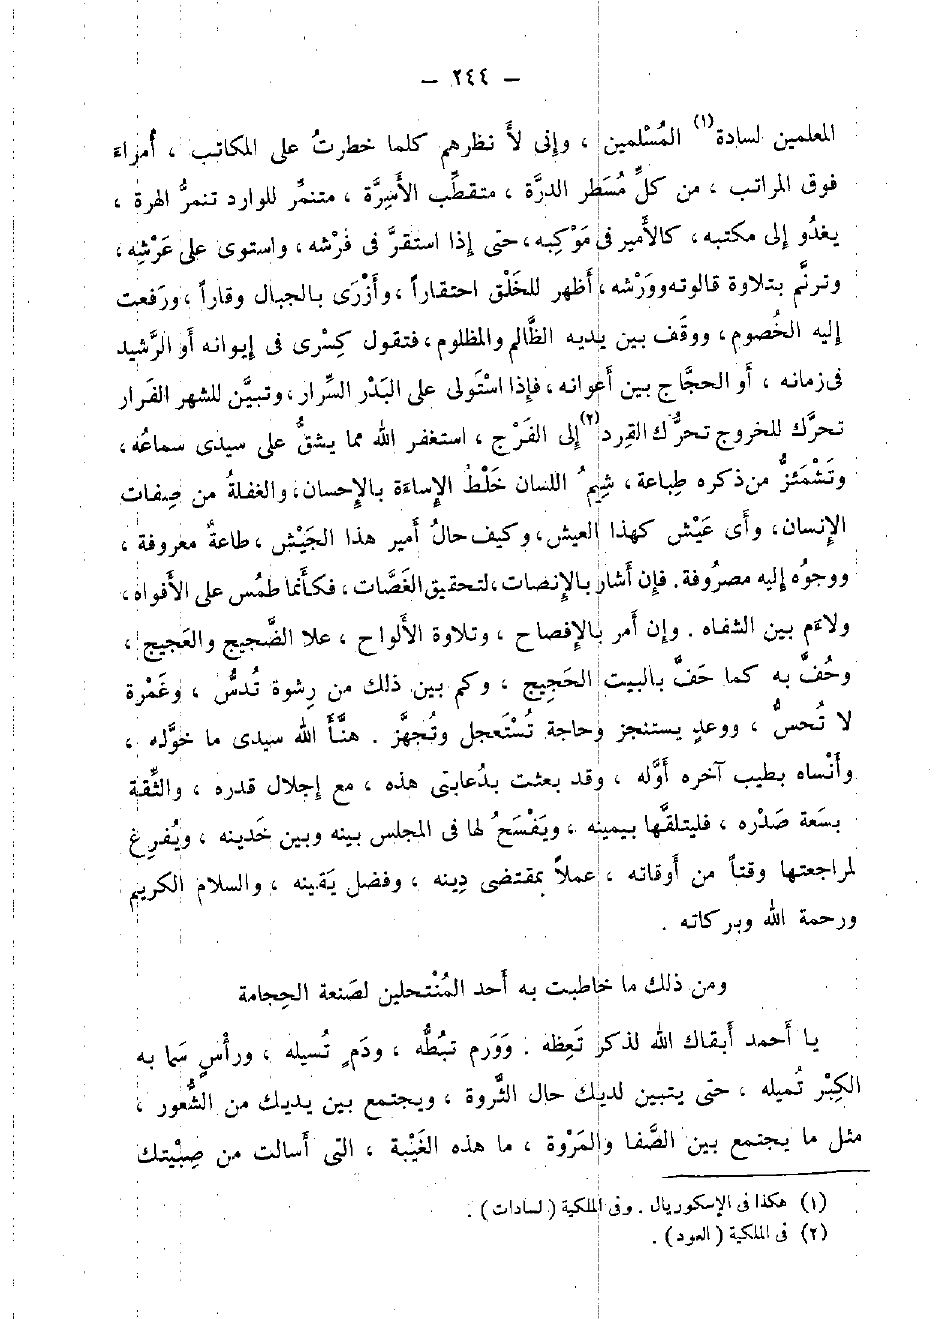 — ٢٤٤ —
المعلمين لسادة(١) المُسْلمين ، وإنى لأَ نظرهم كلما خطرتُ على المكاتب ، أُمراءَ
فوق المراتب ، من كلِّ مُسَطر الدرَّة ، متقطِّب الأَسِرَّة ، متنمِّر للوارد تنمرُّ الهرة ،
يغدُو إلى مكتبه ، كالأَمير فى مَوْكبه ، حتى إذا استقرَّ فى فَرْشه ، واستوى على عَرْشِه ،
وترنَّم بتلاوة قالونه ووَرْشه ، أَظهر للخَلْق احتقاراً ، وأَزْرَى بالجبال وقاراً ، ورَفعت
إليه الخُصوم ، ووقَف بين يديه الظَّالم والمظلوم ، فتقول كِسْرى فى إيوانه أَو الرَّشيد
فى زمانه ، أَو الحجَّاج بين أَعوانه ، فإذا اسْتَولى على البَدْر السِّرار ، وتبيَّن للشهر الفَرار
تحرَّك للخروج تحرُّك القِرد(٢) إلى الفَرْج ، استغفر الله مما يشقُّ على سيدى سماعُه ،
وتَشْمَئزُّ من ذكره طِباعة ، شِيمُ اللسان خَلْطُ الإساءَة بالإحسان ، والغفلةُ من صِفات
الإنسان ، وأَى عَيْش كهذا العيش ، وكيف حالُ أَمير هذا الجَيْش ، طاعةٌ معروفة ،
ووجوُه إليه مصرُوفة. فإن أَشار بالإنصات ، لتحقيق الغَصَّات ، فكأَنما طمُس على الأَفواه ،
ولاءَم بين الشفاه . وإن أَمر بالإفصاح ، وتلاوة الأَلواح ، علا الضَّجيج والعَجيج ،
وحُفَّ به كما حَفَّ بالبيت الحَجِيج ، وكم بين ذلك من رِشوة تُدسُّ ، وغَمْرة
لا تُحسُّ ، ووعدٍ يستنجز وحاجة تُسْتَعجل وتُجهَّز . هنَّأَ الله سيدى ما خوَّله ،
وأَنْساه بطيب آخره أَوَّله ، وقد بعثت بدُعابتى هذه ، مع إجلال قدره ، والثِّقة
بسَعة صَدْره ، فليتلقَّها بيمينه ، ويَفْسَحُ لها فى المجلس بينه وبين خَدينه ، ويُفرِغ
لمراجعتها وقتاً من أَوقاته ، عملاً بمقتضى دِينه ، وفضل يَقينه ، والسلام الكريم
ورحمة الله وبركاته .
ومن ذلك ما خاطبت به أَحد المُنْتحلين لصَنعة الحِجامة
يا أَحمد أَبقاك الله لذكر تَعِظه . وَوَرم تبُطُّه ، ودَمٍ تُسيله ، ورأْسٍ سَما به
الكِبْر تُميله ، حتى يتبين لديك حال الثَّروة ، ويجتمع بين يديك من الشُّعور ،
مثل ما يجتمع بين الصَّفا والمَرْوة ، ما هذه الغَيْبة ، التى أَسالت من صِبْيتك
(١) هكذا فى الإسكوريال . وفى الملكية (لسادات) .
(٢) فى الملكية (العود) .